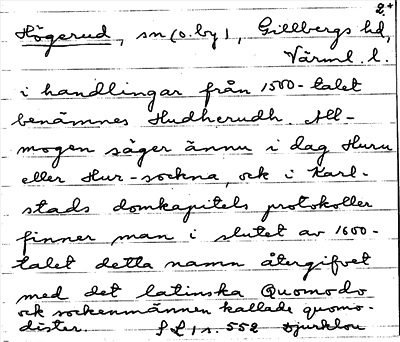 2.+
Högerud, sn (o. by), Gillbergs hd,
Värml. l.
i handlingar från 1500-talet
benämnes Hudherudh. All-
mogen säger ännu i dag Huru
eller Hur-sockna, ock i Karl-
stads domkapitels protokoller
finner man i slutet av 1600-
talet detta namn återgifvet
med det latinska Quomodo
ock sockenmännen kallade quomo-
dister. S L 1 s. 552 Djurklou